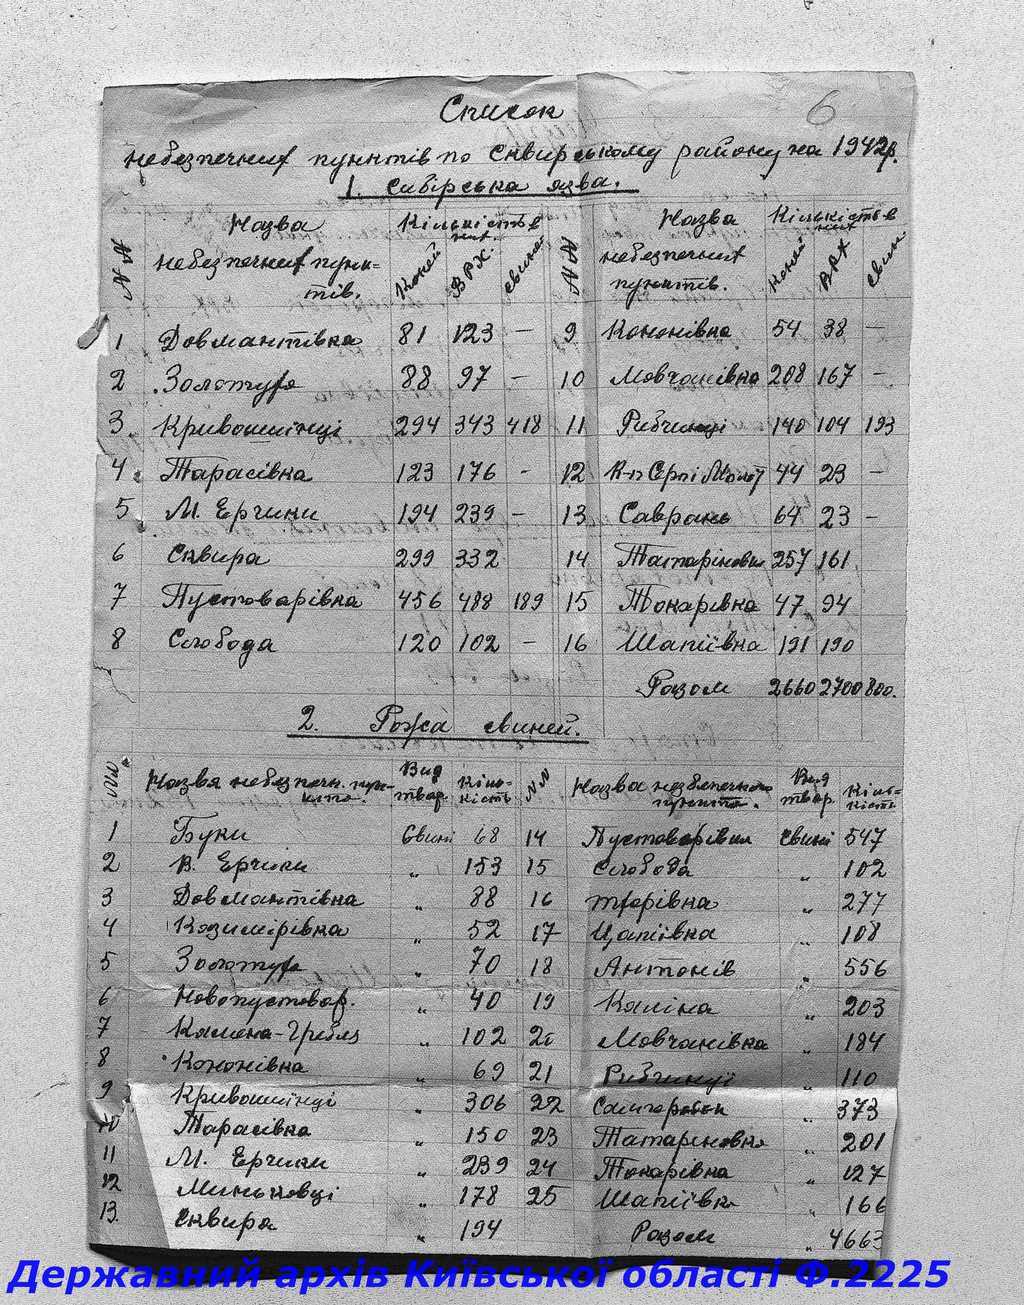 6
Список
небезпечних пунктів по Сквирському району на 1942 р.
1. Сибірська язва.
№№ Назва небезпечних пунк-тів. Кількість в них Коней ВРХ. свиней №№ Назва небезпечних пунктів. Кількість в них Коней ВРХ Свин.
1 Довмантівка 81 123 — 9 Кононівка 54 38 —
2 Золотуха 88 97 — 10 Мовчанівка 208 167 —
3 Кривошиїнці 294 343 418 11 Рибчинці 140 104 193
4 Тарасівка 123 176 - 12 К-п Серп і Молот 44 23 —
5 М. Ерчики 194 239 — 13 Саврань 64 23 —
6 Сквира 299 332 14 Татаріновка 257 161
7 Пустоварівка 456 488 189 15 Токарівка 47 94
8 Слобода 120 102 — 16 Шапіївка 191 190
Разом 2660 2700 800.
2. Рожа свиней.
№№ Назва небезпечн. пун-кта. Вид твар. Кіль-кість №№ Назва небезпечного пункта. Вид твар. Кіль-кість
1 Буки Свині 68 14 Пустоварівка свині 547
2 В. Ерчики „ 153 15 Слобода „ 102
3 Довмантівка „ 88 16 277
4 Казимірівка „ 52 17 Цапіївка „ 108
5 Золотуха „ 70 18 Антонів „ 556
6 Новопустовар. „ 40 19 Каліна „ 203
7 Камена-Гребля „ 102 20 Мовчанівка „ 184
8 Кононівка „ 69 21 Рибчинці „ 110
9 Кривошиїнці „ 306 22 Самгородок „ 373
10 Тарасівка „ 150 23 Татаріновка „ 201
11 М. Ерчики „ 239 24 Токарівка „ 127
12 Миньковці „ 178 25 Шапіївка „ 166
13. Сквира „ 194 Разом „ 4663
Державний архів Київської області Ф.2225